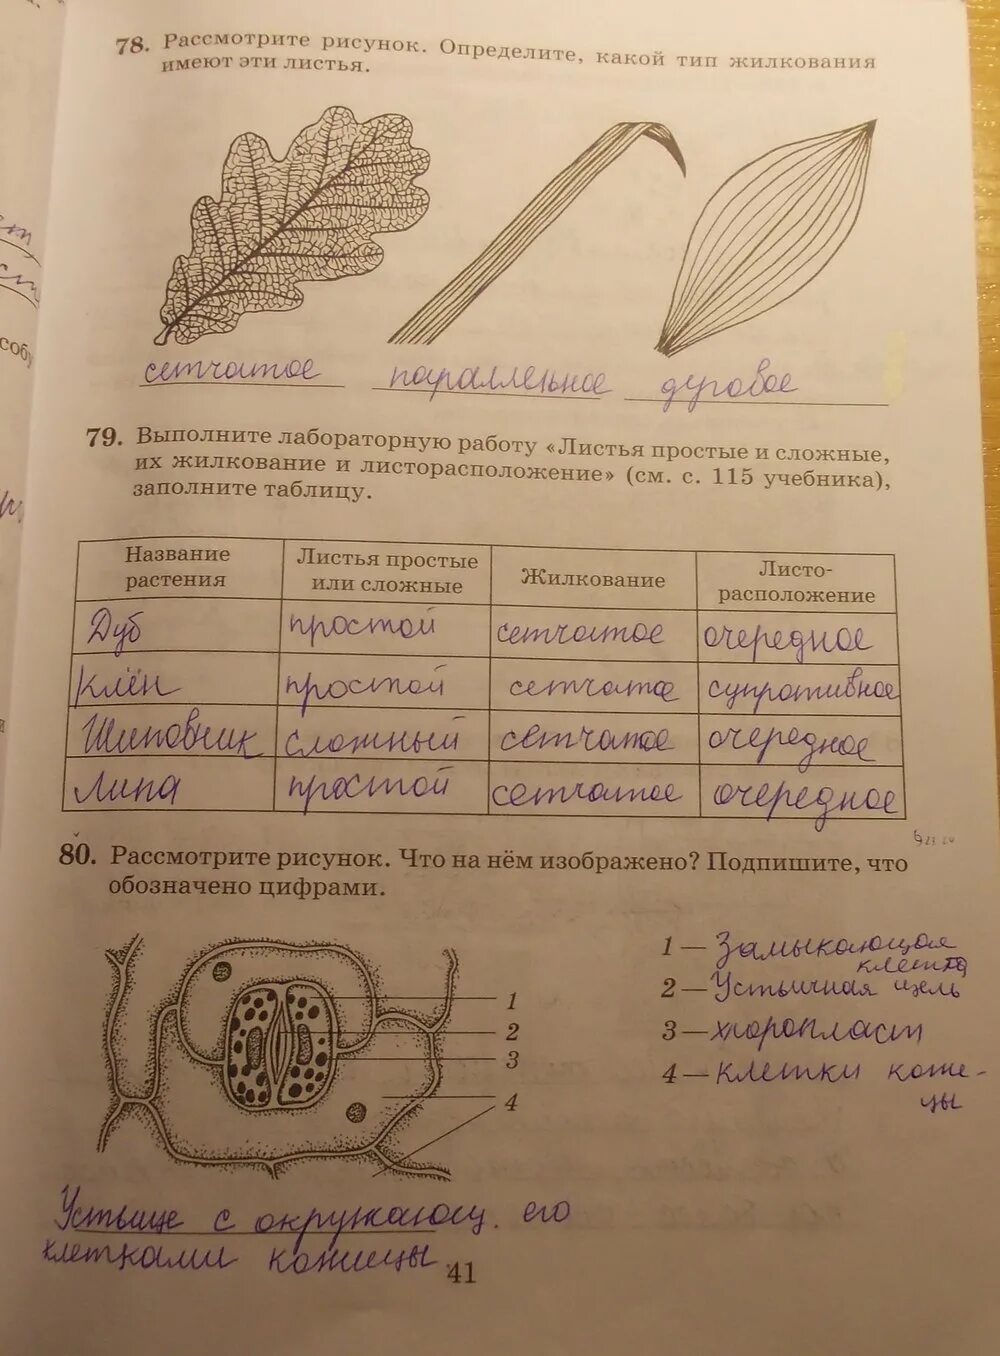 78. Рассмотрите рисунок. Определите, какой тип жилкования
имеют эти листья.
сетчатое параллельное дуговое
79. Выполните лабораторную работу «Листья простые и сложные,
их жилкование и листорасположение» (см. с. 115 учебника),
заполните таблицу.
Название растения Листья простые или сложные Жилкование Листо-расположение
Дуб простой сетчатое очередное
Клён простой сетчатое супротивное
Шиповник сложный сетчатое очередное
Липа простой сетчатое очередное
80. Рассмотрите рисунок. Что на нём изображено? Подпишите, что
обозначено цифрами.
1
2
3
4
1 — Замыкающая
клетка
2 — Устьичная щель
3 — хлоропласт
4 — клетки кожи-
цы
Устьице с окружающ. его
клетками кожицы
41